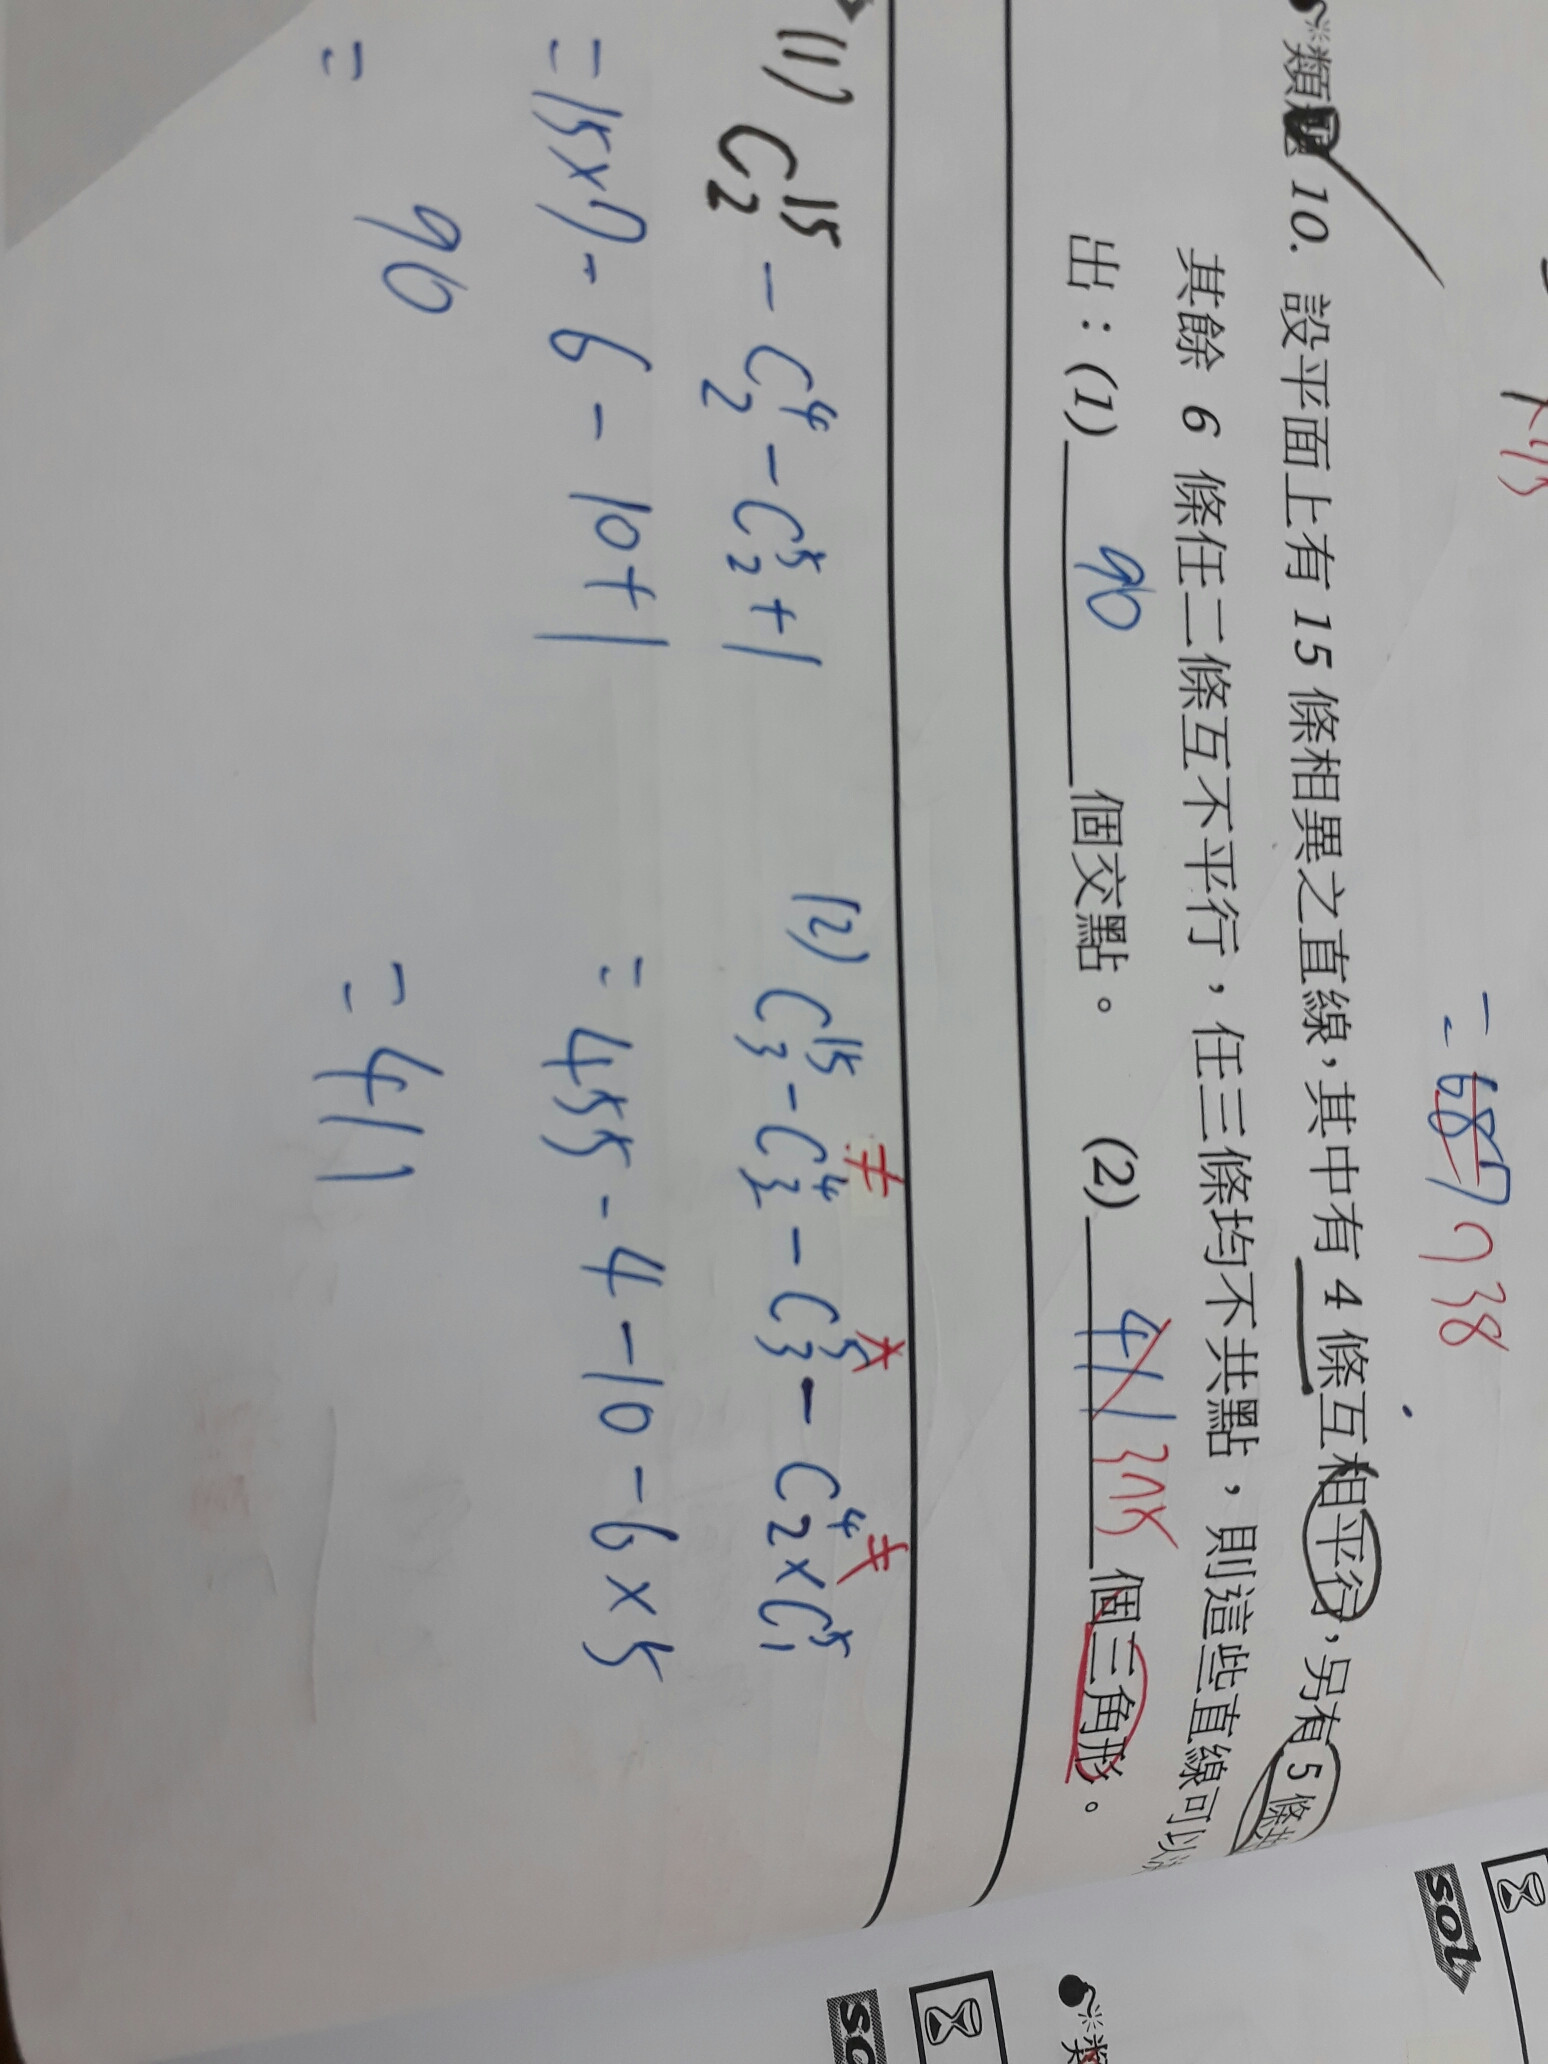 = 687 738
類題 10. 設平面上有 15 條相異之直線,其中有 4 條互相平行,另有 5 條共
其餘 6 條任二條互不平行,任三條均不共點,則這些直線可以決
出:(1) 90 個交點。 (2) 411 375 個三角形。
(1) C15 2 - C4 2 - C5 2 + 1
= 15×7 - 6 - 10 + 1
= 90
(2) C15 3 - C4 3 - C5 3 - C4 2 × C5 1
= 455 - 4 - 10 - 6 × 5
= 411
sol
類